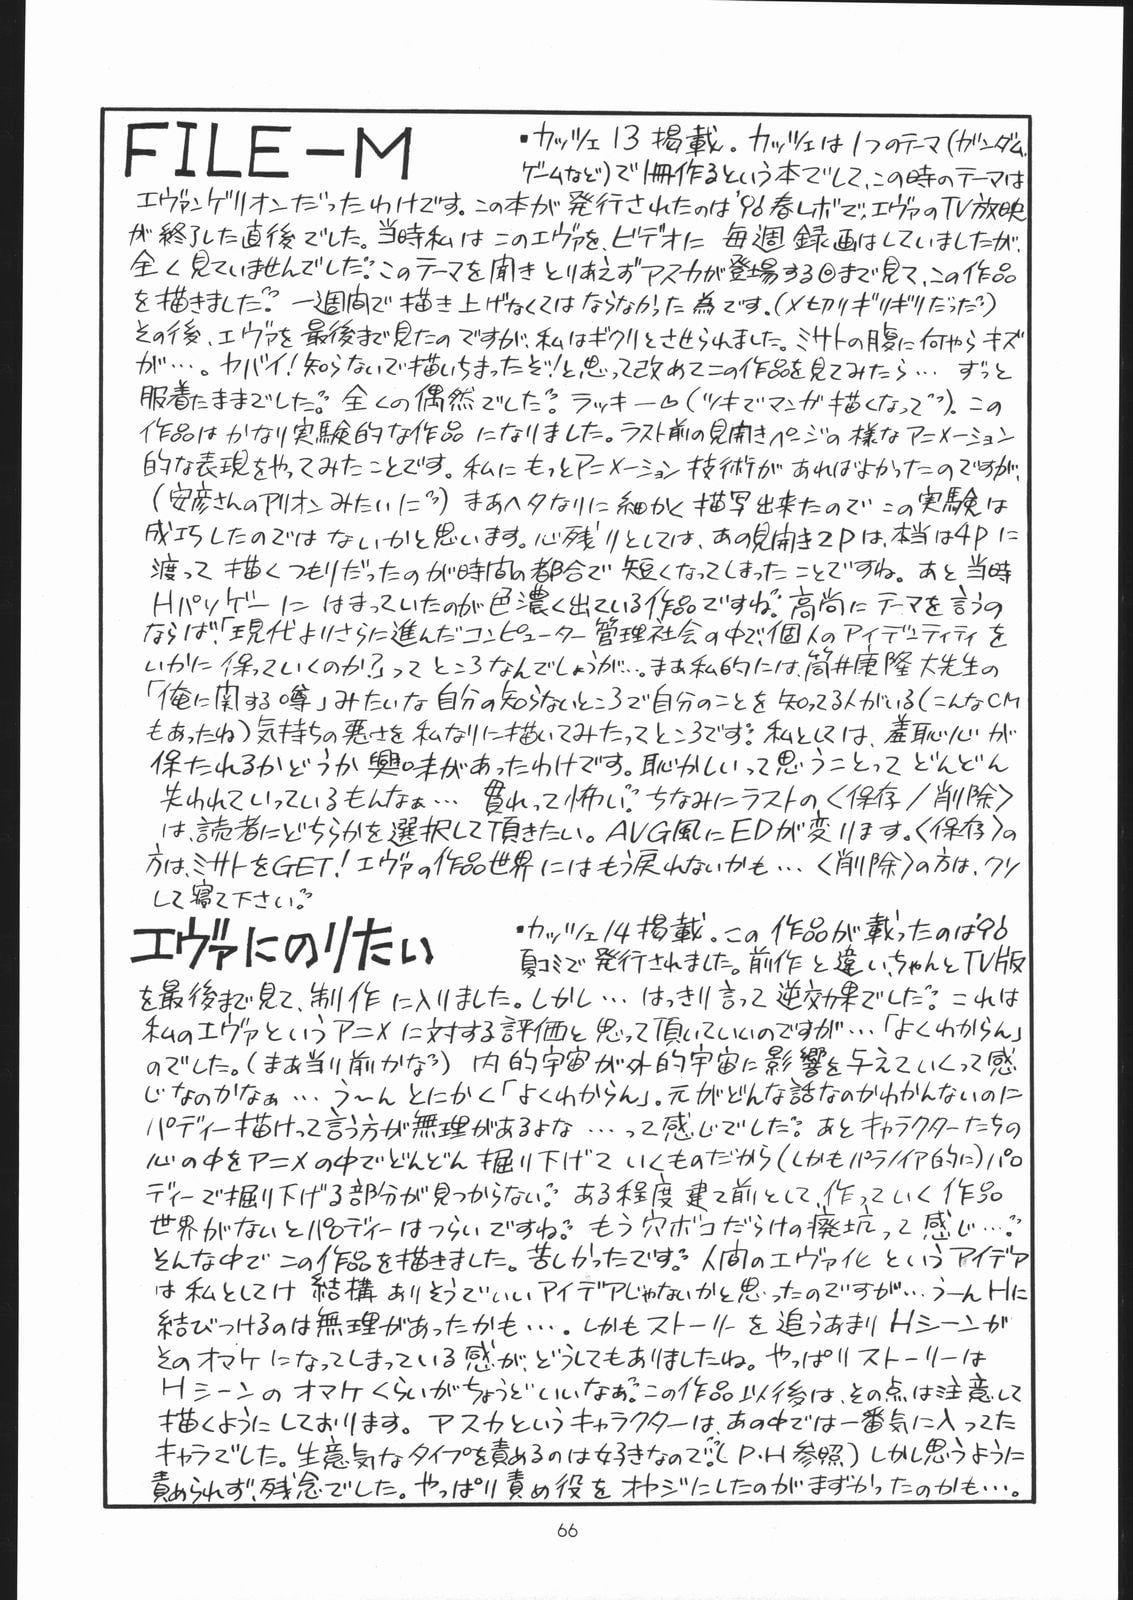 FILE-M
・カッツェ13掲載。カッツェは1つのテーマ(ガンダム、
ゲームなど)で1冊作るという本でして、この時のテーマは
エヴァンゲリオンだったわけです。この本が発行されたのは'96春レボで、エヴァのTV放映
が終了した直後でした。当時私はこのエヴァを、ビデオに毎週録画はしていましたが、
全く見ていませんでした。このテーマを聞きとりあえずアスカが登場する⑧まで見て、この作品
を描きました。一週間で描き上げなくてはならなかった為です。(〆切りギリギリだった)
その後、エヴァを最後まで見たのですが、私はギクリとさせられました。ミサトの腹に何やらキズ
が…。ヤバイ!知らないで描いちまったぞ!と思って改めてこの作品を見てみたら…ずっと
服着たままでした。全くの偶然でした。ラッキー♡(ツキでマンガ描くなって)。この
作品はかなり実験的な作品になりました。ラスト前の見開きページの様なアニメーション
的な表現をやってみたことです。私にもっとアニメーション技術があればよかったのですが、
(安彦さんのアリオンみたいに)まあヘタなりに細かく描写出来たのでこの実験は
成巧したのではないかと思います。心残りとしては、あの見開き2Pは、本当は4Pに
渡って描くつもりだったのが時間の都合で短くなってしまったことですね。あと当時
Hパソゲーにはまっていたのが色濃く出ている作品ですね。高尚にテーマを言うの
ならば、「現代よりさらに進んだコンピューター管理社会の中で、個人のアイデンティティを
いかに保っていくのか?」ってところなんでしょうが…。まあ私的には、筒井康隆大先生の
「俺に関する噂」みたいな自分の知らないところで自分のことを知ってる人がいる(こんなCM
もあったね)気持ちの悪さを私なりに描いてみたってところです。私としては、羞恥心が
保たれるかどうか興味があったわけです。恥かしいって思うことってどんどん
失われていっているもんなぁ…慣れって怖い。ちなみにラストの〈保存/削除〉
は、読者にどちらかを選択して頂きたい。AVG風にEDが変ります。〈保存〉の
方は、ミサトをGET!エヴァの作品世界にはもう戻れないかも…〈削除〉の方は、クソ
して寝て下さい。
エヴァにのりたい
・カッツェ14掲載。この作品が載ったのは'96
夏コミで発行されました。前作と違い、ちゃんとTV版
を最後まで見て、制作に入りました。しかし…はっきり言って逆効果でした。これは
私のエヴァというアニメに対する評価と思って頂いていいのですが…「よくわからん」
のでした。(まあ当り前かな)内的宇宙が外的宇宙に影響を与えていくって感
じなのかなぁ…う〜んとにかく「よくわからん」。元がどんな話なのかわかんないのに
パロディー描けって言う方が無理があるよな…って感じでした。あとキャラクターたちの
心の中をアニメの中でどんどん掘り下げていくものだから(しかもパラノイア的に)パロ
ディーで掘り下げる部分が見つからない。ある程度建て前として、作っていく作品
世界がないとパロディーはつらいですね。もう穴ボコだらけの廃坑って感じ…。
そんな中でこの作品を描きました。苦しかったです。人間のエヴァ化というアイデア
は私としては結構ありそうでいいアイデアじゃないかと思ったのですが…うーんHに
結びつけるのは無理があったかも…。しかもストーリーを追うあまりHシーンが
そのオマケになってしまっている感が、どうしてもありましたね。やっぱりストーリーは
Hシーンのオマケくらいがちょうどいいなぁ。この作品以後は、その点は注意して
描くようにしております。アスカというキャラクターは、あの中では一番気に入ってた
キャラでした。生意気なタイプを責めるのは好きなので。(P・H参照)しかし思うように
責められず、残念でした。やっぱり責め役をオヤジにしたのがまずかったのかも…。
66